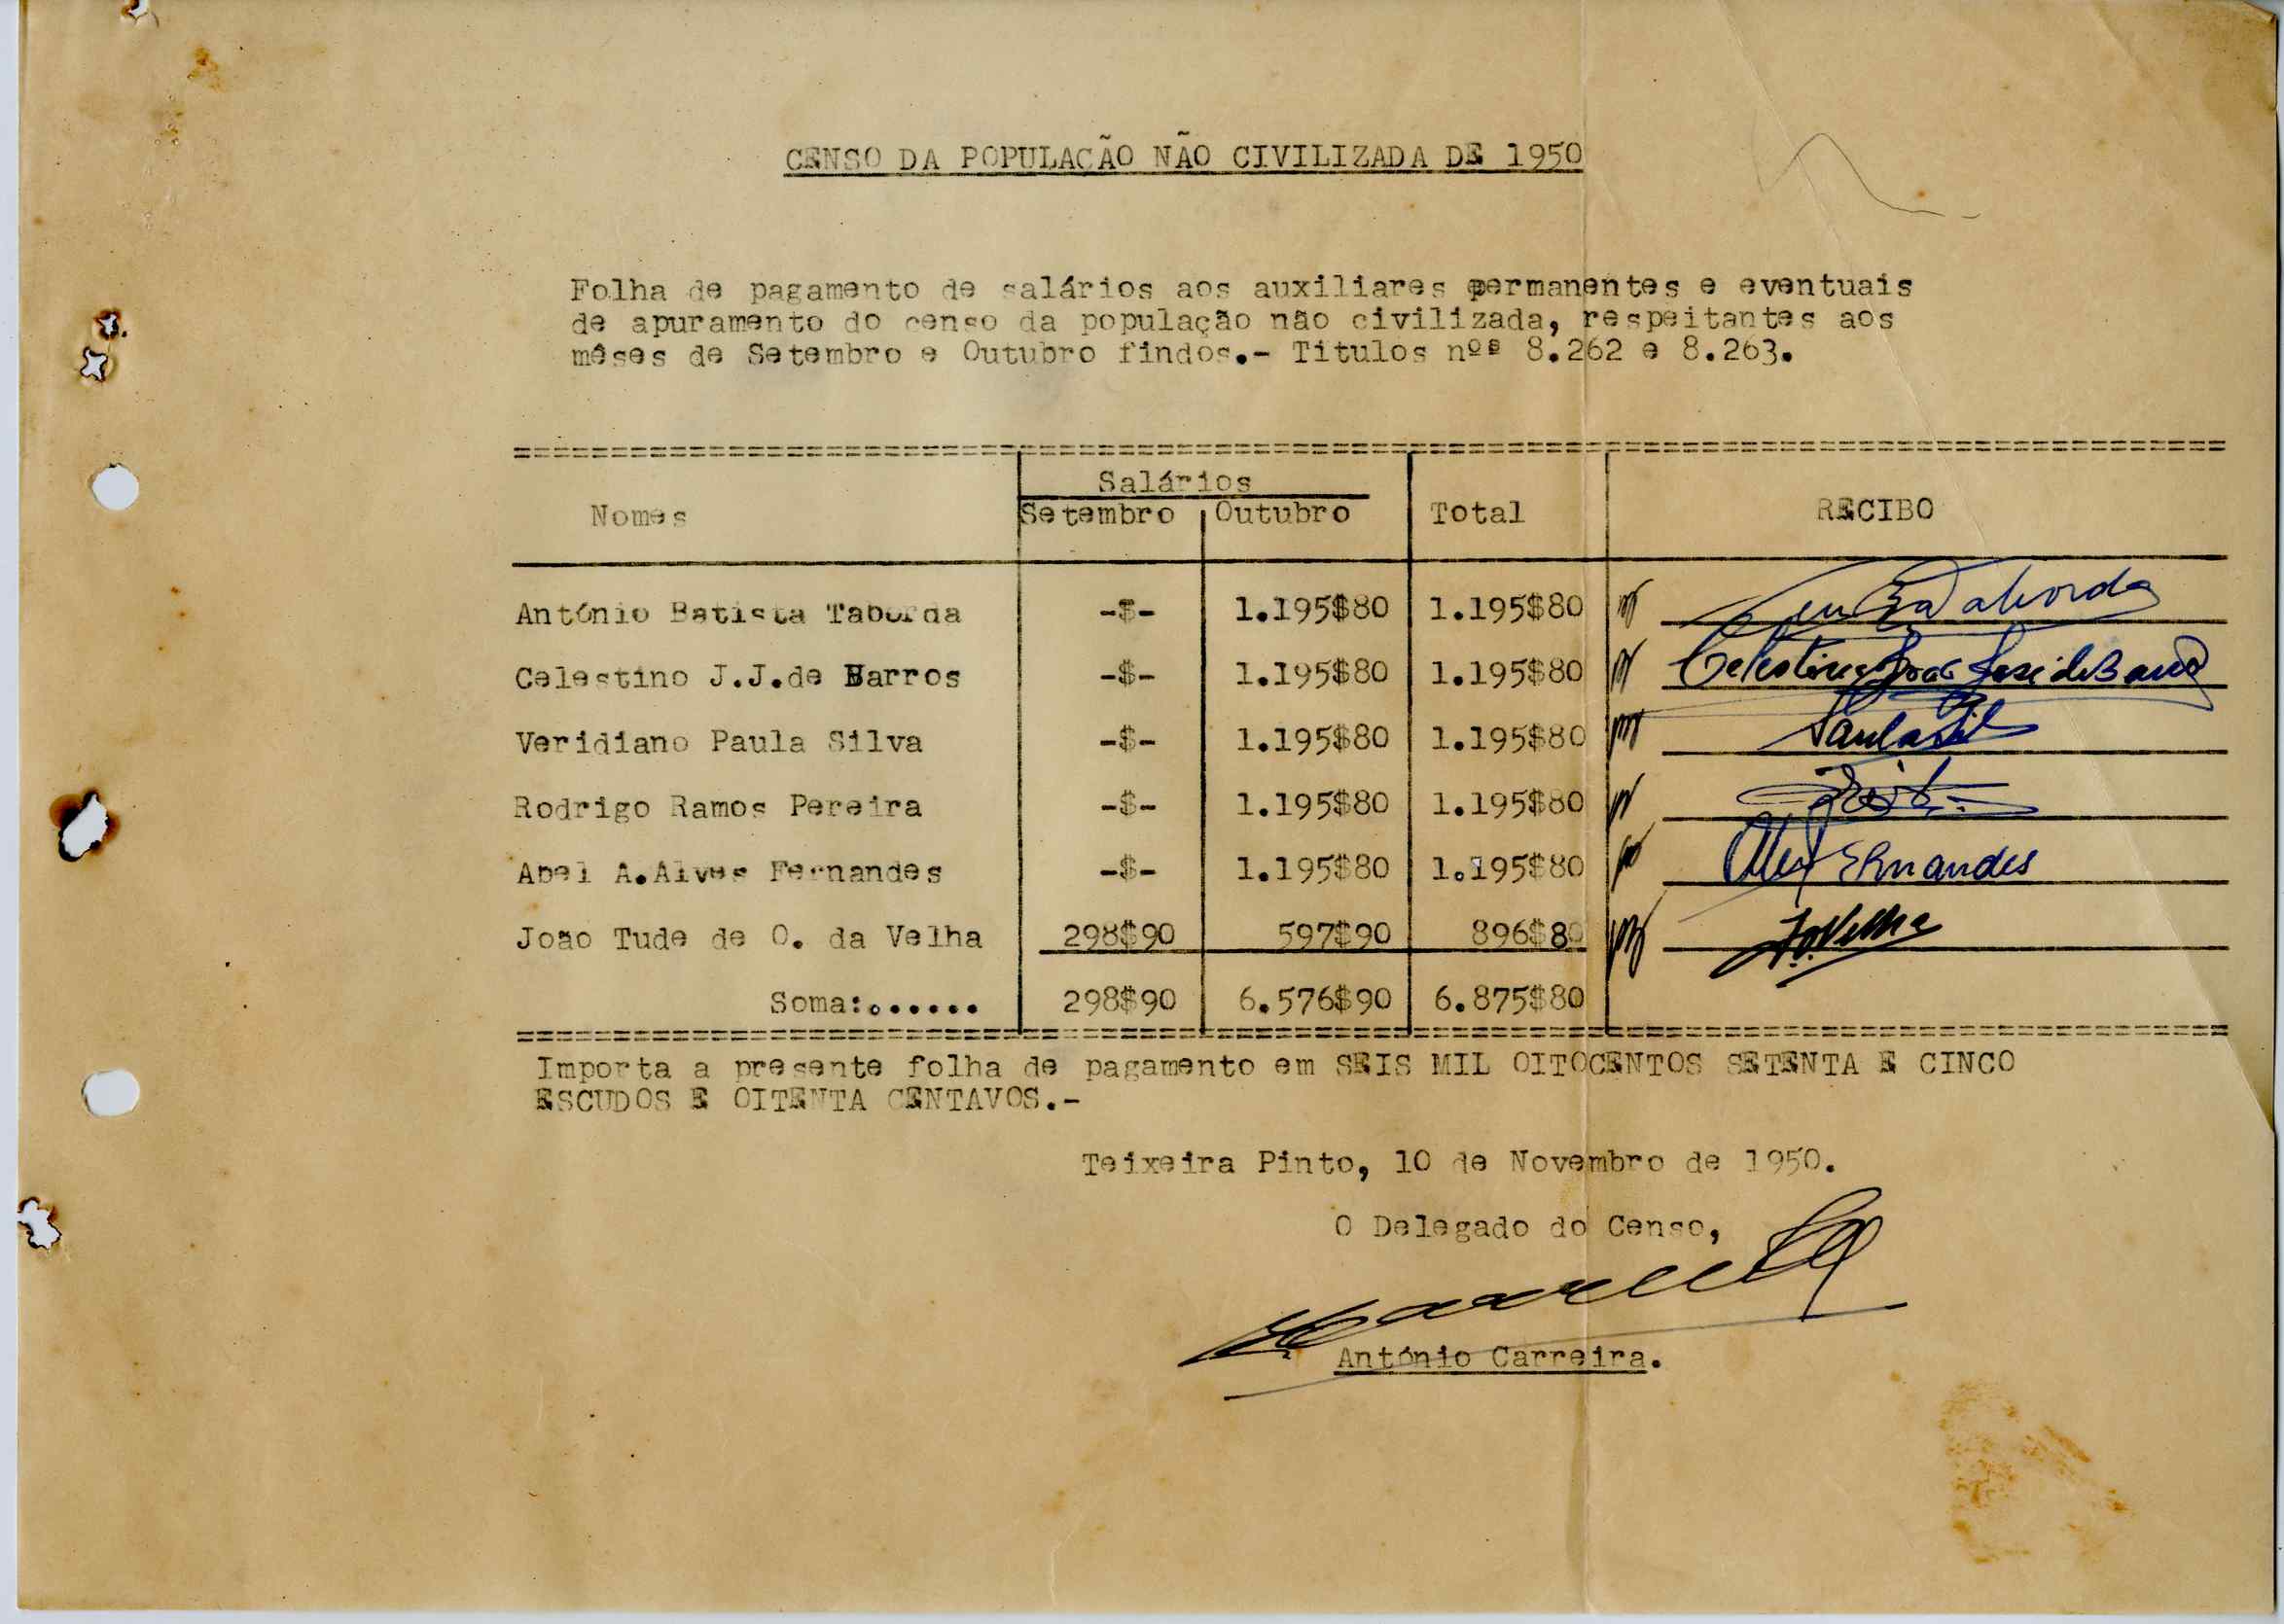 CENSO DA POPULAÇÃO NÃO CIVILIZADA DE 1950
Folha de pagamento de salários aos auxiliares permanentes e eventuais
de apuramento do censo da população não civilizada, respeitantes aos
mêses de Setembro e Outubro findos.- Titulos nºs 8.262 e 8.263.
Nomes Salários Total RECIBO
Setembro Outubro
António Batista Taborda -$- 1.195$80 1.195$80
Celestino J.J.de Barros -$- 1.195$80 1.195$80 Celestino João José de Barros
Veridiano Paula Silva -$- 1.195$80 1.195$80 Paula Silva
Rodrigo Ramos Pereira -$- 1.195$80 1.195$80
Abel A.Alves Fernandes -$- 1.195$80 1.195$80 Fernandes
João Tude de O. da Velha 298$90 597$90 896$80 Velha
Soma:....... 298$90 6.576$90 6.875$80
Importa a presente folha de pagamento em SEIS MIL OITOCENTOS SETENTA E CINCO
ESCUDOS E OITENTA CENTAVOS.-
Teixeira Pinto, 10 de Novembro de 1950.
O Delegado do Censo,
António Carreira.